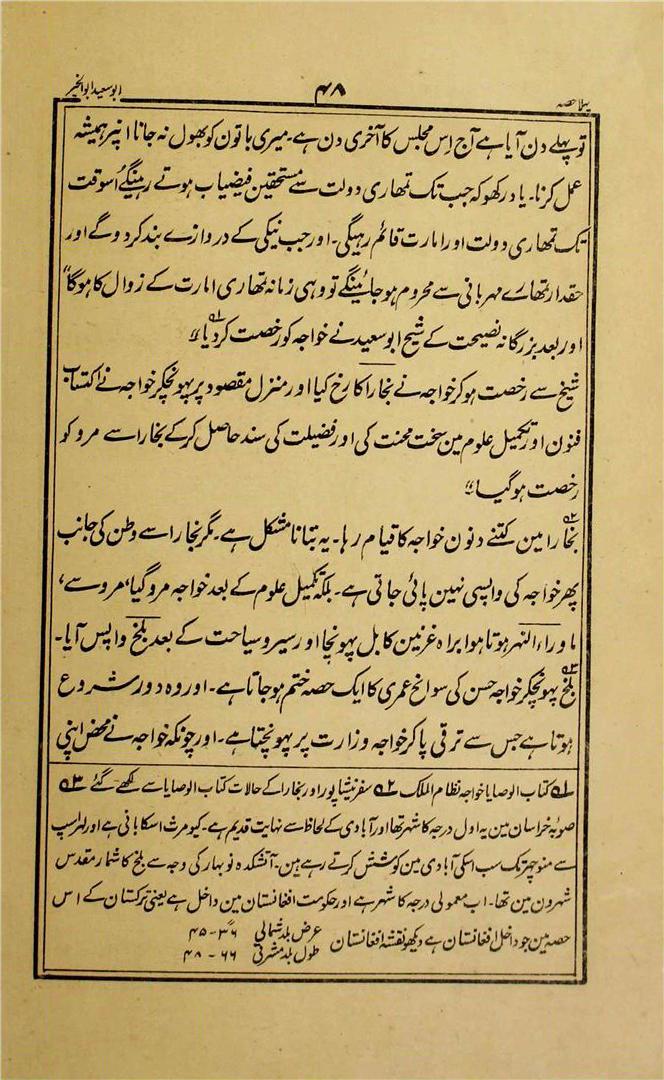 پہلا حصہ ۴۸ ابوسعید ابوالخیر
تو پہلے دن آیا ہے آج اِس مجلس کا آخری دن ہے۔ میری باتون کو بھول نہ جانا انپر ہمیشہ
عمل کرنا۔ یاد رکھو کہ جب تک تمھاری دولت سے مستحقین فیضیاب ہوتے رہینگے اُسوقت
تک تمھاری دولت اور امارت قائم رہیگی۔ اور جب نیکی کے دروازے بند کردوگے اور
حقدار تمھارے مہربانی سے محروم ہو جائینگے تو وہی زمانہ تمھاری امارت کے زوال کا ہوگا“
اور بعد بزرگانہ نصیحت کے شیخ ابوسعید نے خواجہ کو رخصت کردیا ۵۱؎
شیخ سے رخصت ہوکر خواجہ نے بخارا کا رخ کیا اور منزل مقصود پر پہونچکر خواجہ نے اکتساب
فنون اور تکمیل علوم مین سخت محنت کی اور فضیلت کی سند حاصل کرکے بخارا سے مرو کو
رخصت ہوگیا“
۵۲؎ بخارا مین کتنے دنون خواجہ کا قیام رہا۔ یہ بتانا مشکل ہے۔ مگر بخارا سے وطن کی جانب
پھر خواجہ کی واپسی نہین پائی جاتی ہے۔ بلکہ تکمیل علوم کے بعد خواجہ مرو گیا، مرو سے،
ماوراءالنہر ہوتا ہوا براہ غزنین کابل پہونچا اور سیر و سیاحت کے بعد بلخ واپس آیا۔
۵۳؎ بلخ پہونچکر خواجہ حسن کی سوانح عمری کا ایک حصہ ختم ہو جاتا ہے۔ اور وہ دور شروع
ہوتا ہے جس سے ترقی پاکر خواجہ وزارت پر پہونچتا ہے۔ اور چونکہ خواجہ نے محض اپنی
۵۱؎ کتاب الوصایا خواجہ نظام الملک ۵۲؎ سفر نیشاپور اور بخارا کے حالات کتاب الوصایا سے لکھے گئے ۵۳؎
صوبہ خراسان مین یہ اول درجہ کا شہر تھا اور آبادی کے لحاظ سے نہایت قدیم ہے۔ کیومرث اسکا بانی ہے اور لہراسپ
سے منوچہر تک سب اسکی آبادی مین کوشش کرتے رہے ہین۔ آتشکدہ نوبہار کی وجہ سے بلخ کا شمار مقدس
شہرون مین تھا۔ اب معمولی درجہ کا شہر ہے اور حکومت افغانستان مین داخل ہے یعنی ترکستان کے اس
حصہ مین جو داخل افغانستان ہے دیکھو نقشہ افغانستان عرض بلد شمالی ۳۶-۴۵
طول بلد مشرقی ۶۶-۴۸